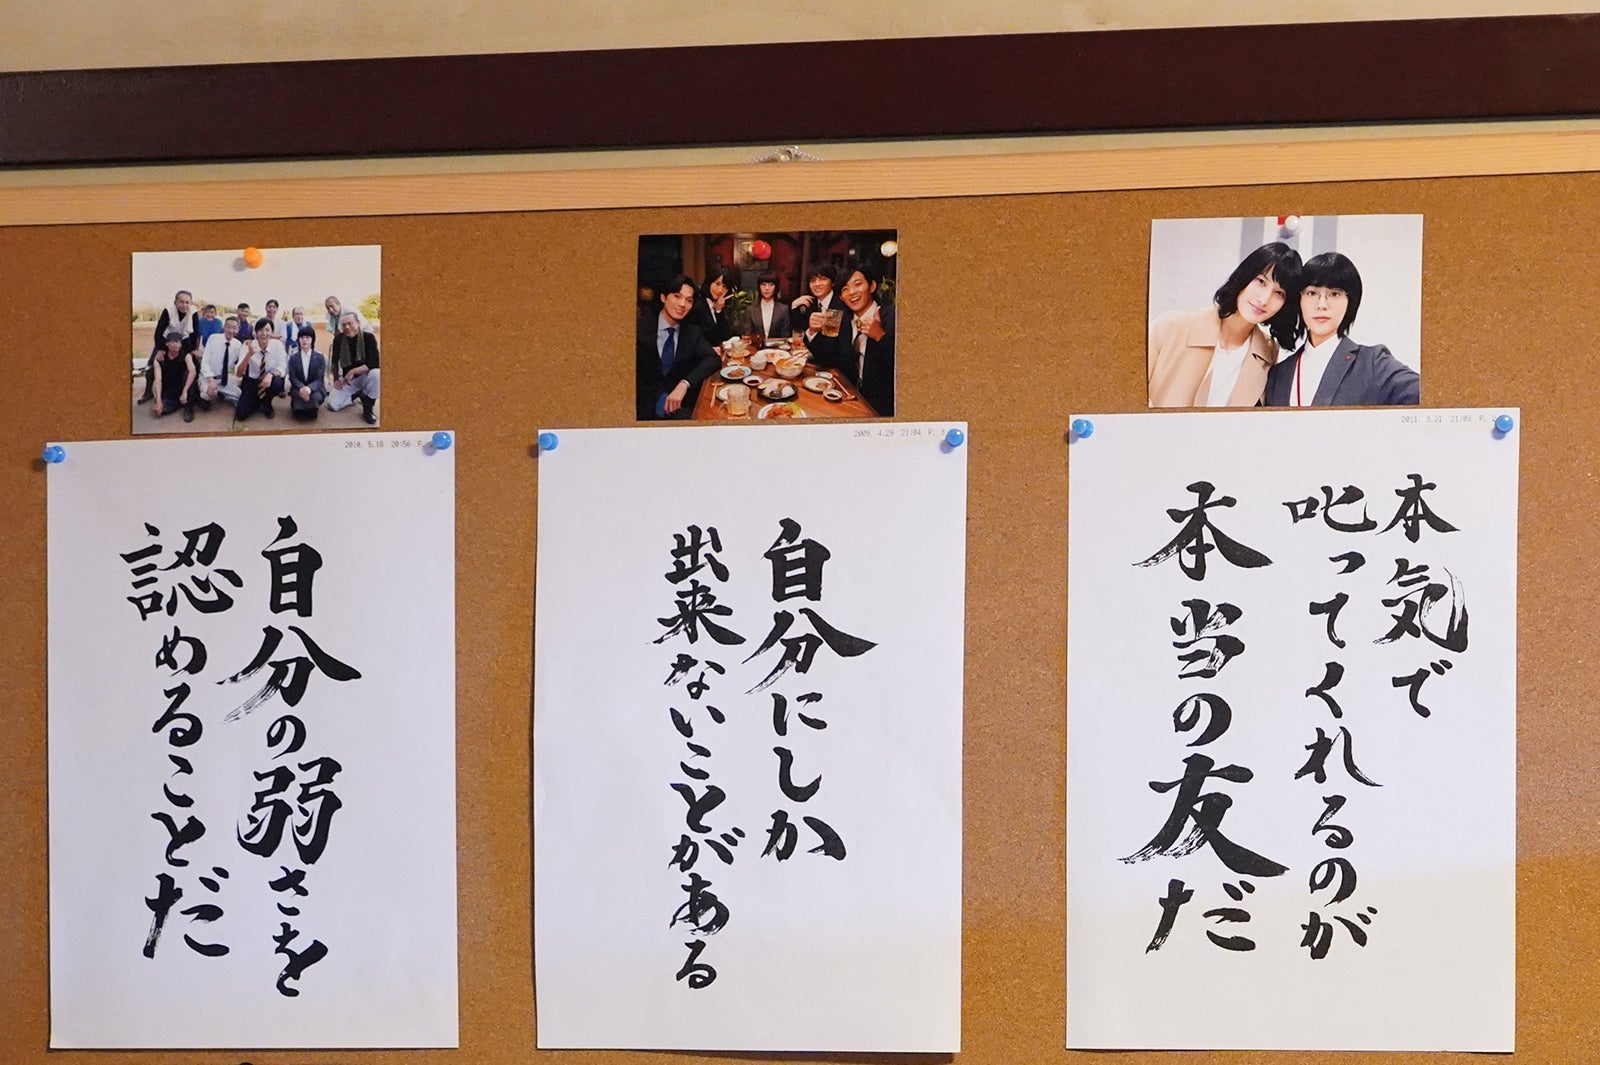 2010. 5.18 20:56 P.
自分の弱さを
認めることだ
2009. 4.29 21:04 P. 3
自分にしか
出来ないことがある
2011. 3.21 21:03 P. 2
本気で
叱ってくれるのが
本当の友だ